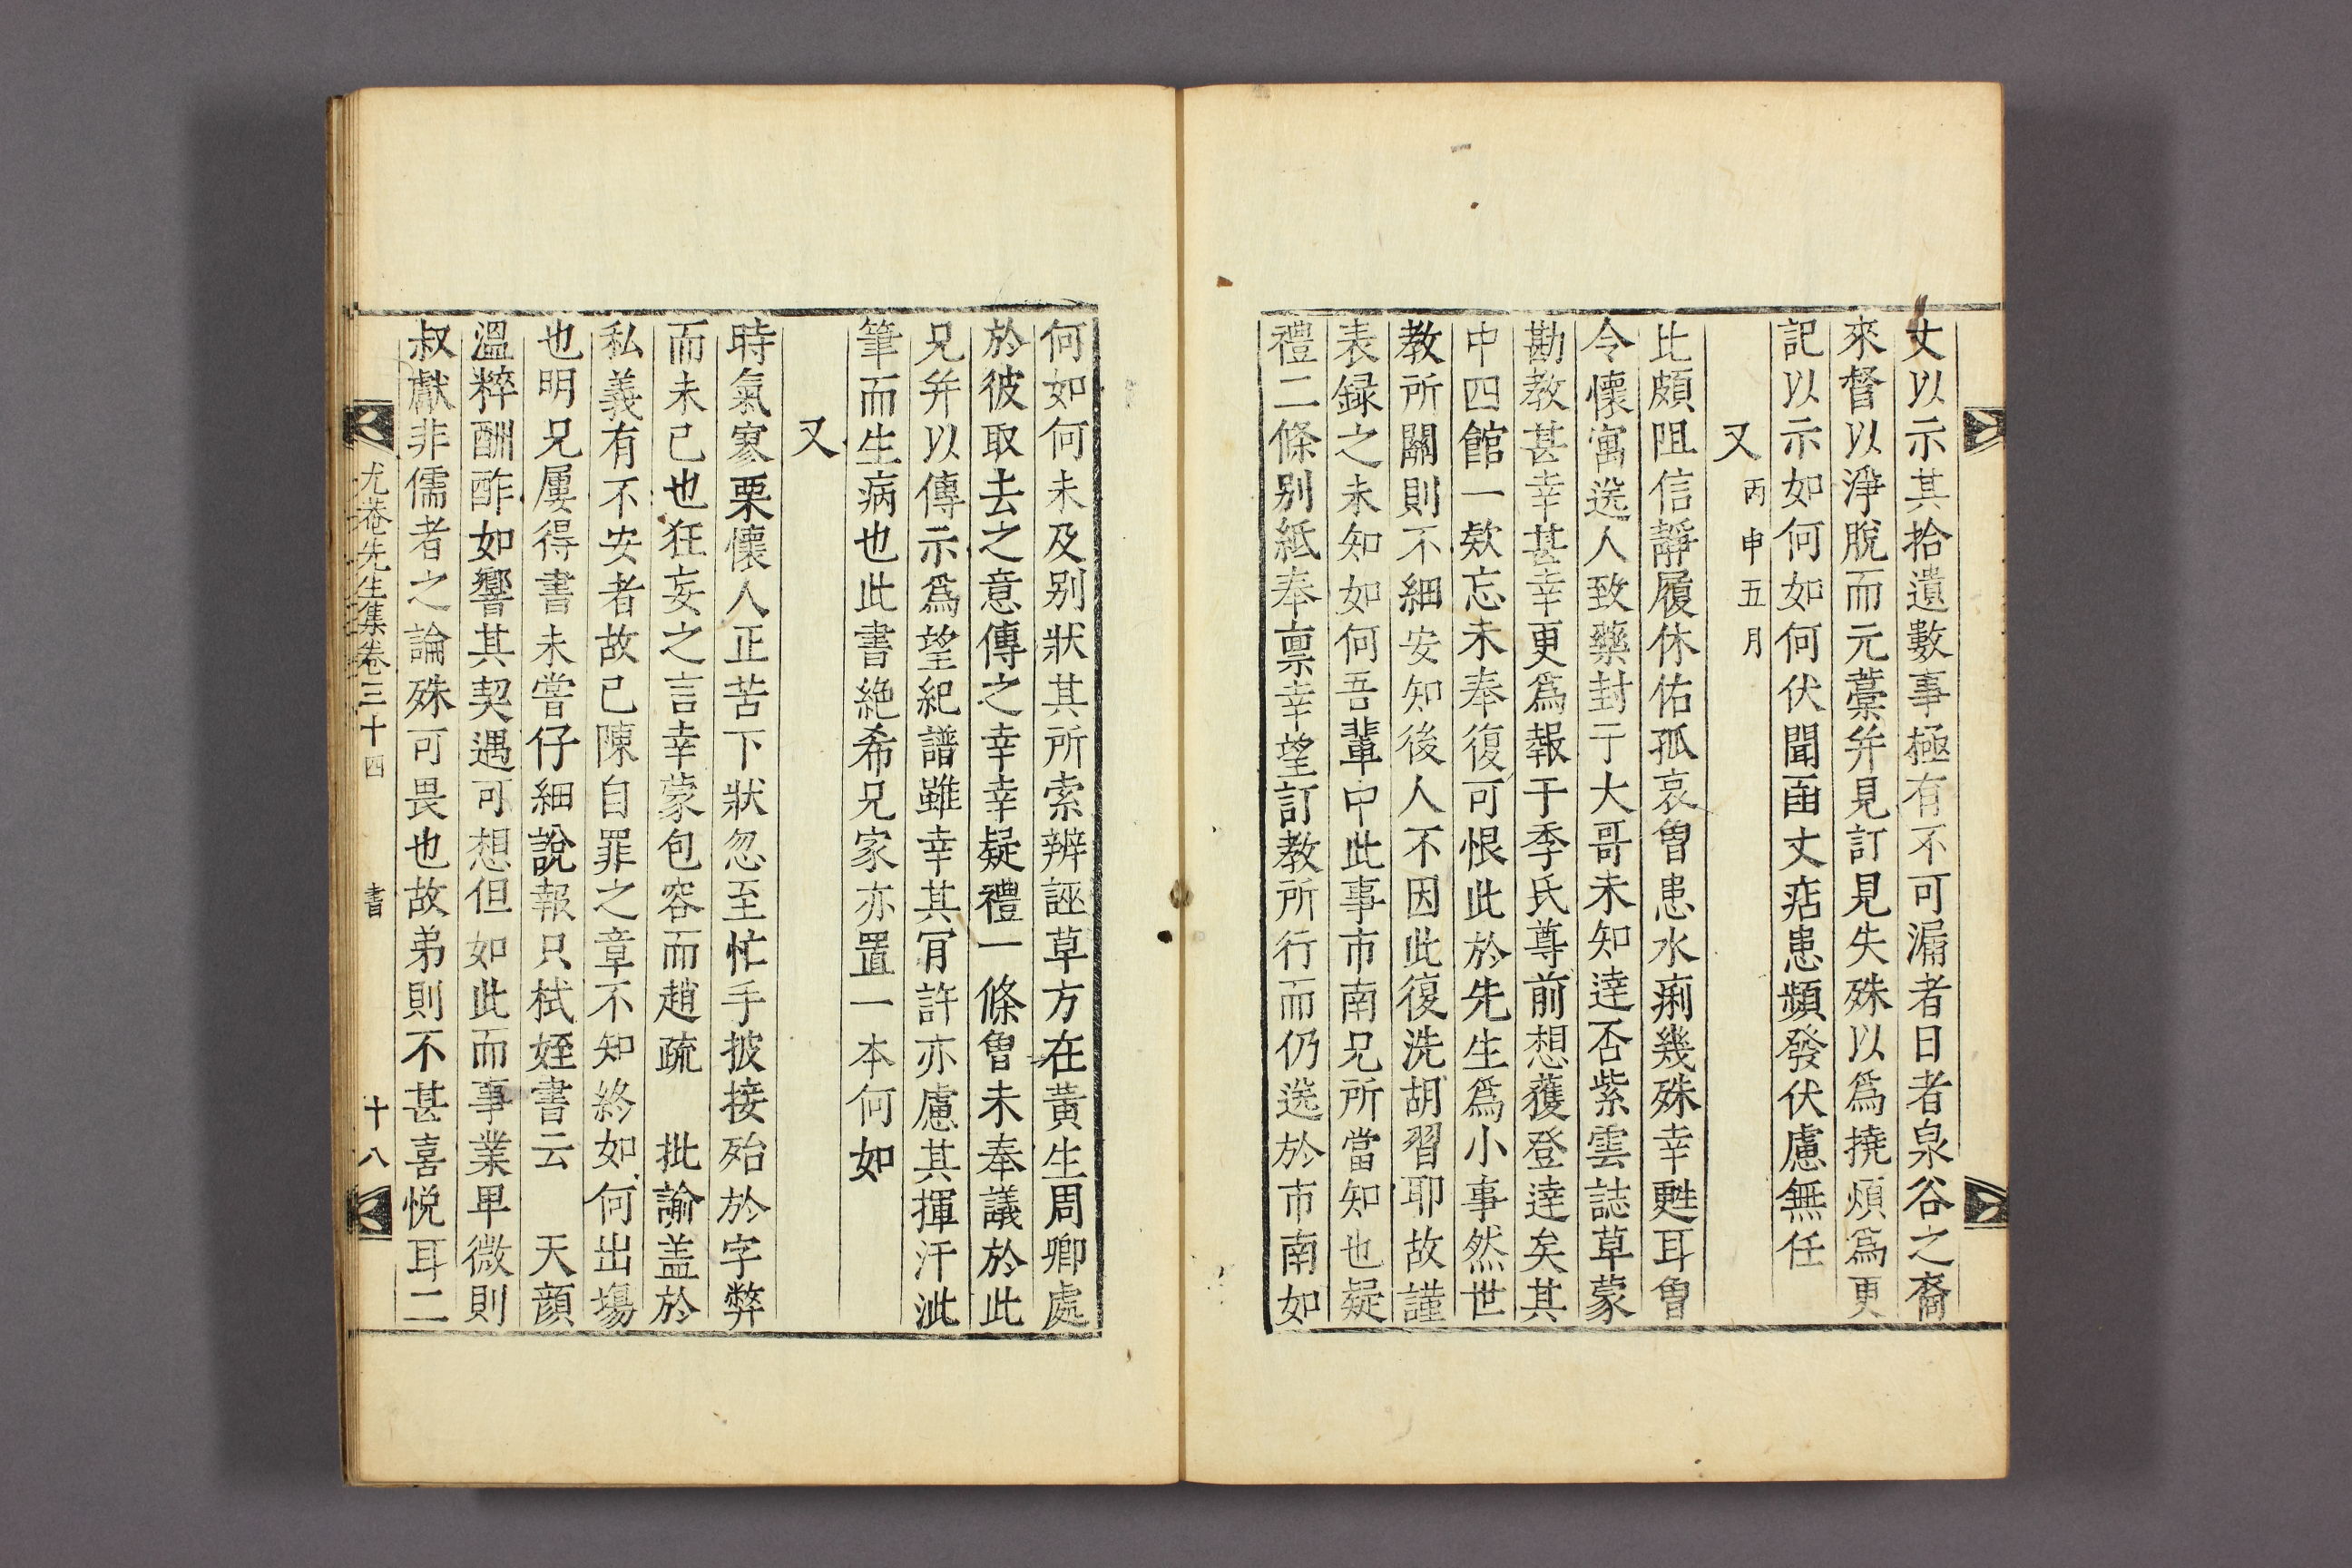 丈以示其拾遺數事極有不可漏者日者泉谷之裔
來督以淨脫而元藁幷見訂見失殊以爲撓煩爲更
記以示如何如何伏聞函丈痁患頻發伏慮無任
又 丙申五月
比頗阻信靜履休佑孤哀曾患水痢幾殊幸甦耳曾
令懷寓送人致藥封于大哥未知達否紫雲誌草蒙
勘教甚幸甚幸更爲報于季氏尊前想蒦登達矣其
中四館一欵忘未奉復可恨此於先生爲小事然世
教所關則不細安知後人不因此復洗胡習耶故謹
表録之未知如何吾輩中此事市南兄所當知也疑
禮二條別紙奉禀幸望訂教所行而仍送於市南如
何如何未及別狀其所索辨誣草方在黃生周卿處
於彼取去之意傳之幸幸疑禮一條曾未奉議於此
兄幷以傳示爲望紀譜雖幸其肎許亦慮其揮汗泚
筆而生病也此書絶希兄家亦置一本何如
又
時氣寥栗懷人正苦下狀忽至忙手披接殆於字弊
而未已也狂妄之言幸蒙包容而趙疏 批諭盖於
私義有不安者故已陳自罪之章不知終如何出場
也明兄屢得書未嘗仔細說報只栻姪書云 天顔
溫粹酬酢如響其契遇可想但如此而事業卑微則
叔獻非儒者之論殊可畏也故弟則不甚喜悅耳二
尤菴先生集卷三十四 書 十八